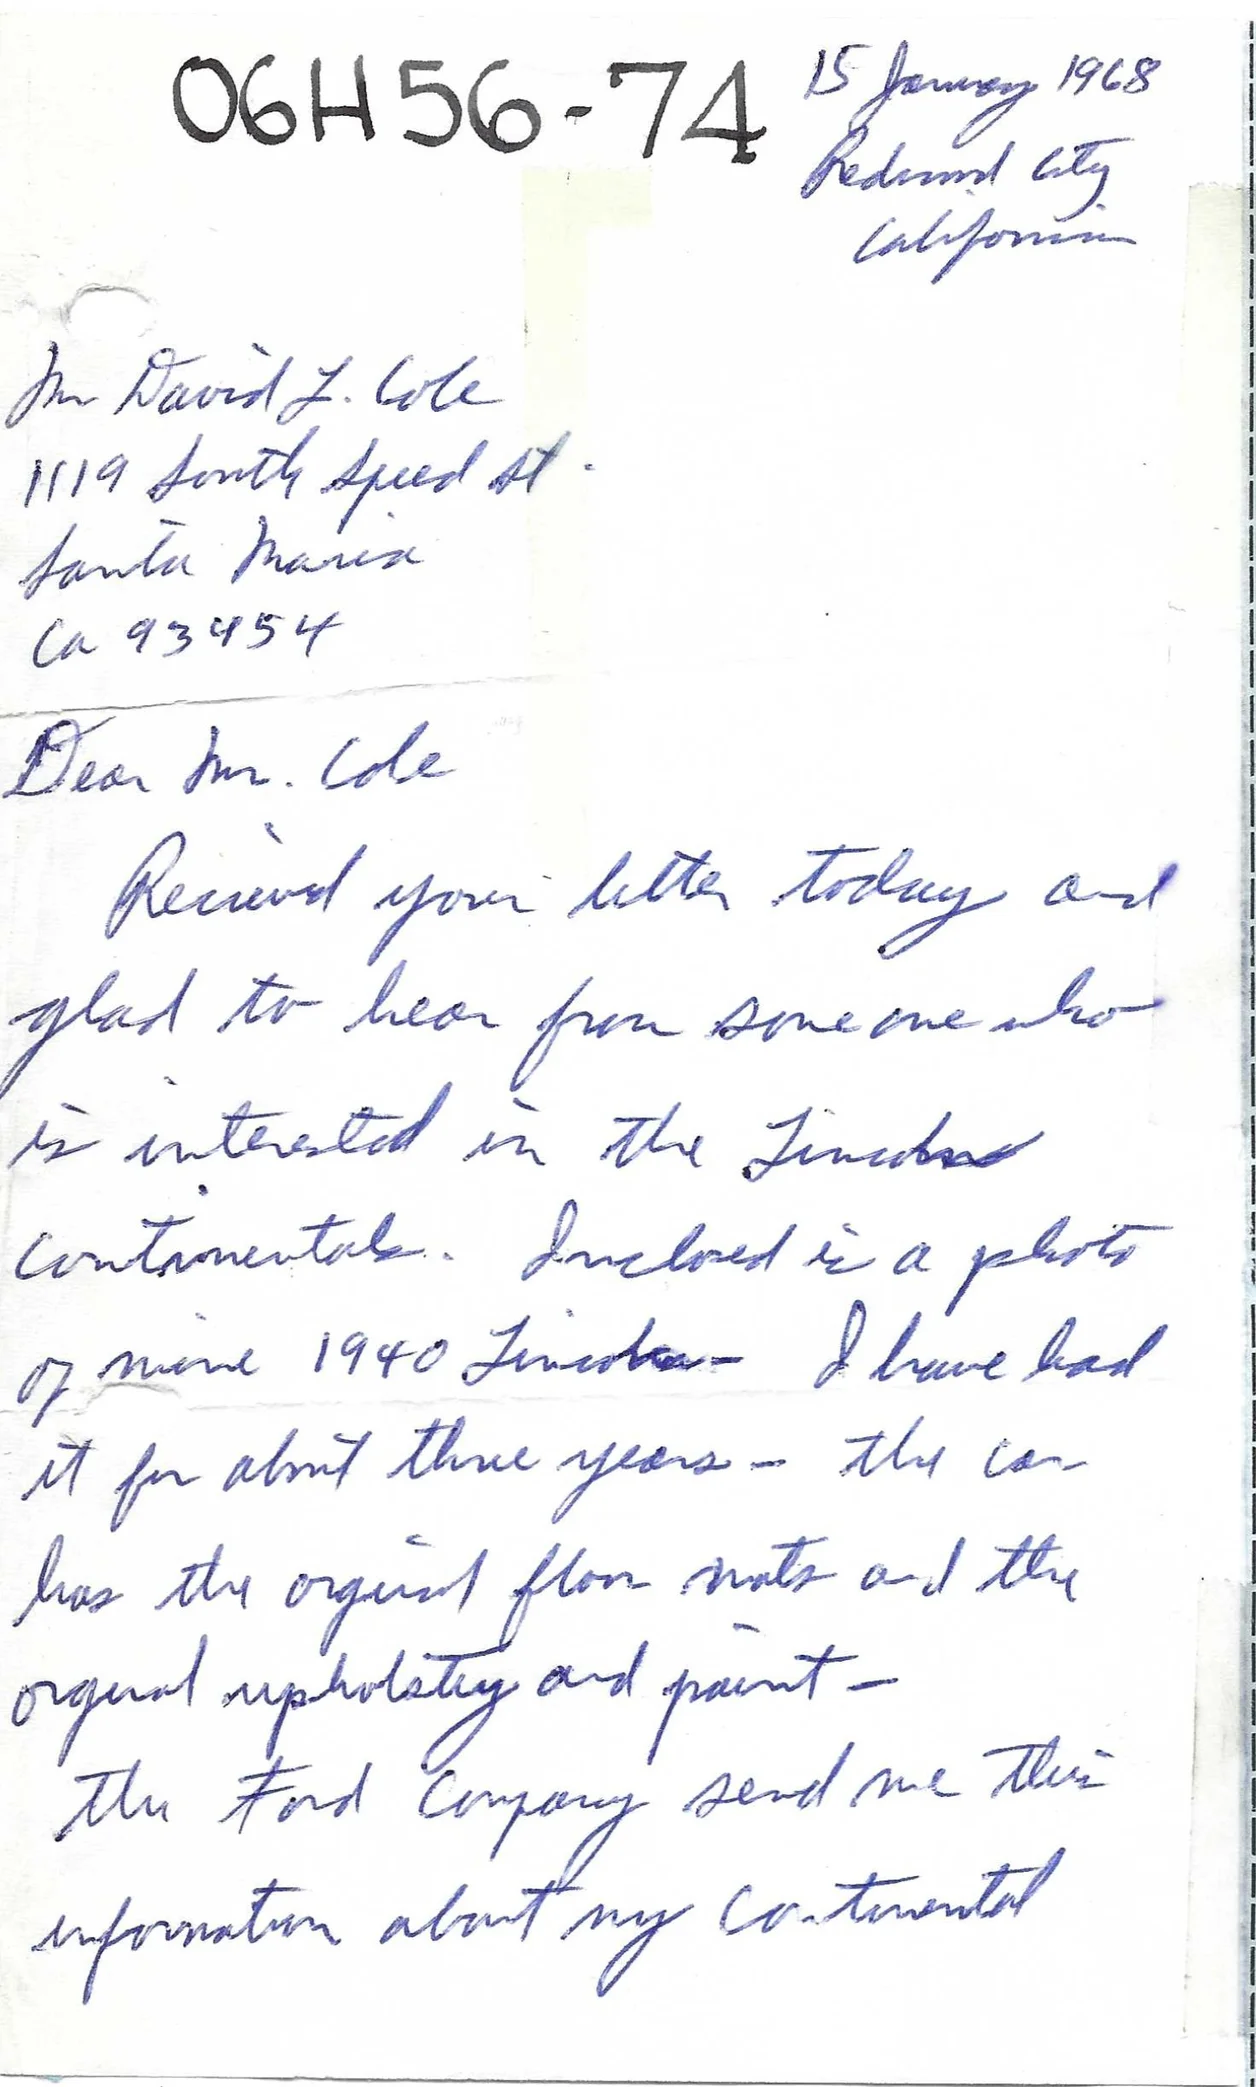 06H56-74
15 January 1968
Redwood City
California
Mr David L. Cole
1119 South Speed St.
Santa Maria
Ca 93454
Dear Mr. Cole
Recieved your letter today and
glad to hear from someone who
is interested in the Lincoln
Continentals. Inclosed is a photo
of mine 1940 Lincoln - I have had
it for about three years - the car
has the orginal floor mats and the
orginal upholstry and paint -
the Ford Company send me this
information about my Continental